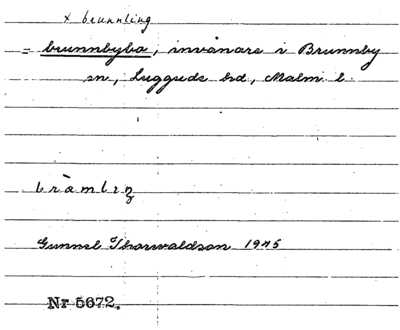 x brunnling
= brunnbybo, invånare i Brunnby
sn, Luggude hd, Malm l.
bràmlɪŋ
Gunnel Thorwaldson 1975
Nr 5672.